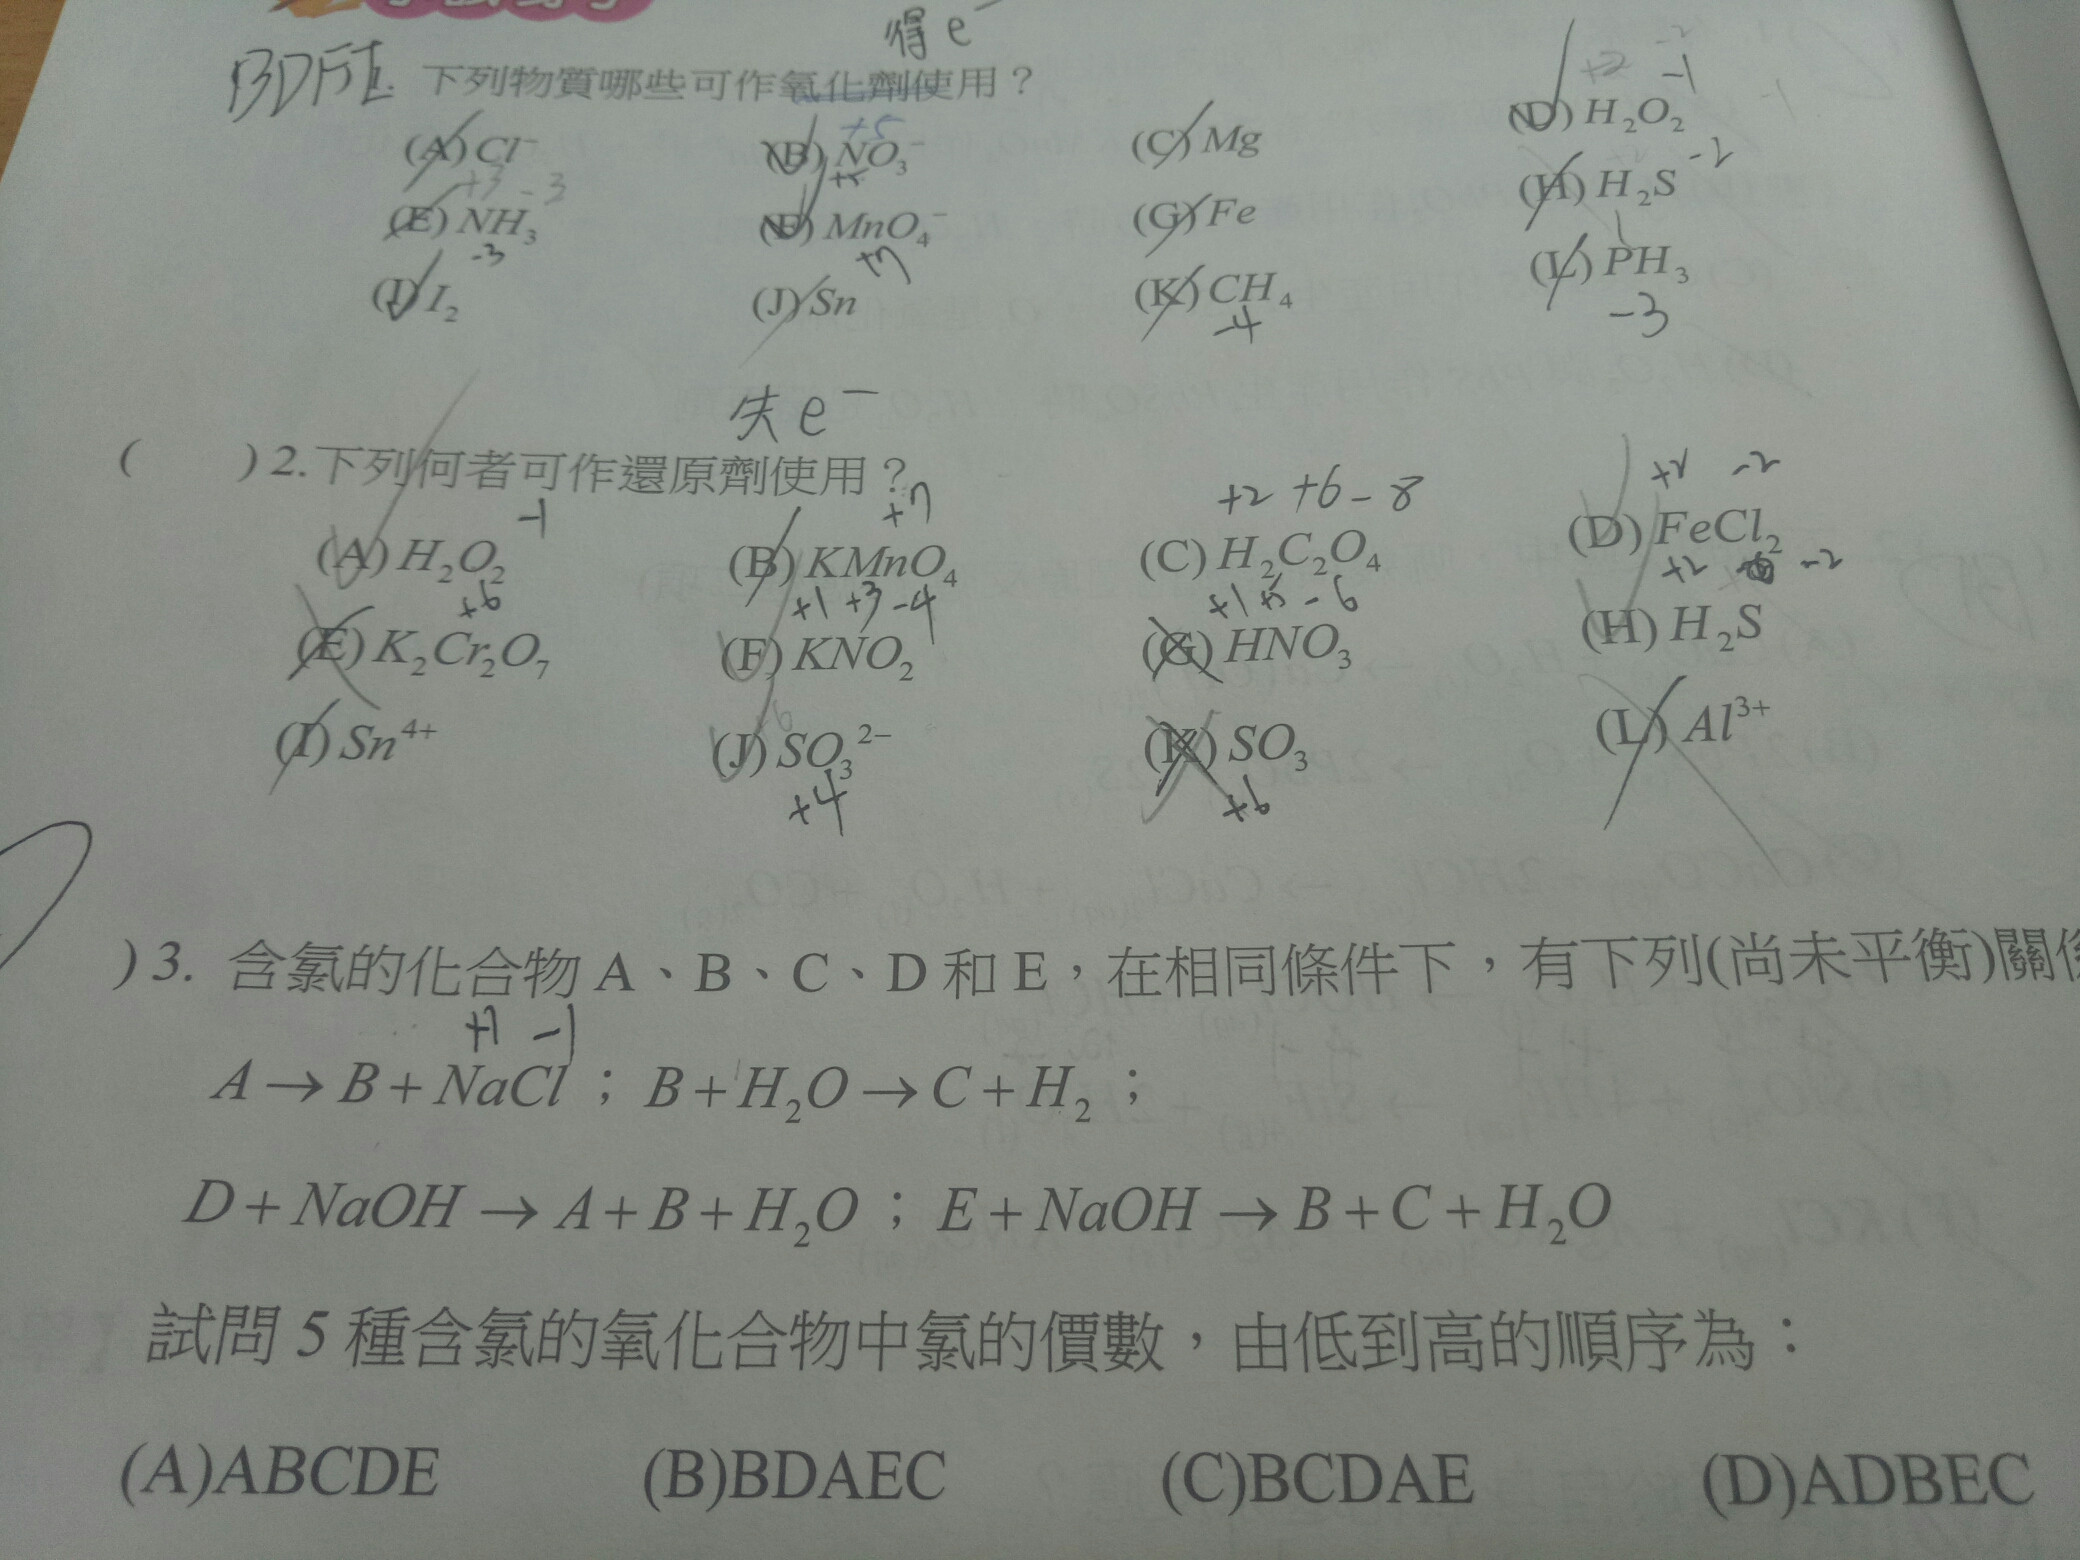 得 e⁻
BDFI. 下列物質哪些可作氧化劑使用？
+5 -1
(A) Cl⁻ (B) NO₃⁻ (C) Mg (D) H₂O₂
+3 -3 +5 -2
(E) NH₃ (F) MnO₄⁻ (G) Fe (H) H₂S
-3 +7
(I) I₂ (J) Sn (K) CH₄ (L) PH₃
-4 -3
失 e⁻
( ) 2. 下列何者可作還原劑使用？
-1 +7 +2 +6 -8 +2 -2
(A) H₂O₂ (B) KMnO₄ (C) H₂C₂O₄ (D) FeCl₂
+6 +1 +3 -4 +1 +5 -6 +2 -2
(E) K₂Cr₂O₇ (F) KNO₂ (G) HNO₃ (H) H₂S
(I) Sn⁴⁺ (J) SO₃²⁻ (K) SO₃ (L) Al³⁺
+4 +6
) 3. 含氯的化合物 A、B、C、D 和 E，在相同條件下，有下列(尚未平衡)關係
+1 -1
A → B + NaCl ； B + H₂O → C + H₂ ；
D + NaOH → A + B + H₂O ； E + NaOH → B + C + H₂O
試問 5 種含氯的氧化合物中氯的價數，由低到高的順序為：
(A)ABCDE (B)BDAEC (C)BCDAE (D)ADBEC